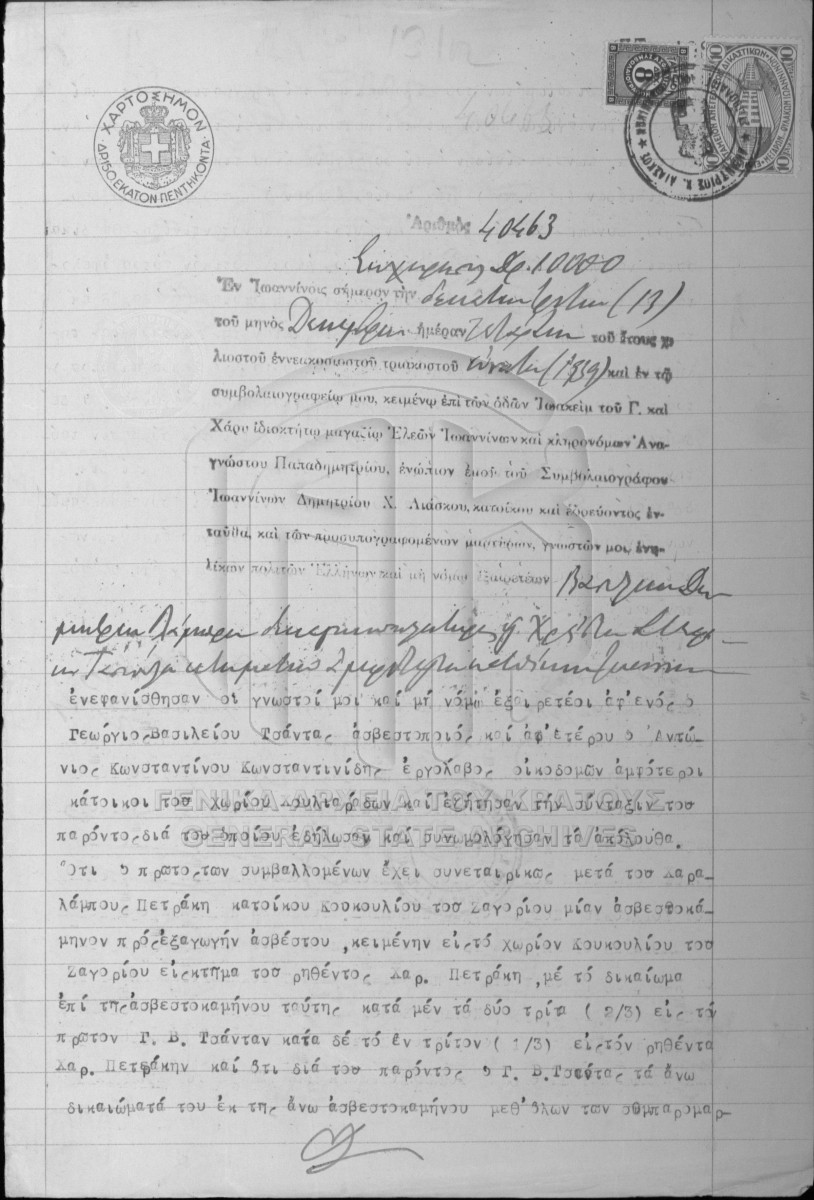 ΧΑΡΤΟΣΗΜΟΝ
ΔΡ150 ΕΚΑΤΟΝ ΠΕΝΤΗΚΟΝΤΑ
8
100
100
Ἀριθμὸς 40463
Δρ. 10000
Ἐν Ἰωαννίνοις σήμερον τὴν δεκάτην τρίτην (13)
τοῦ μηνὸς Δεκεμβρίου ἡμέραν Τετάρτην τοῦ ἔτους χι
λιοστοῦ ἐννεακοσιοστοῦ τριακοστοῦ ἐνάτου (1939) καὶ ἐν τῷ
συμβολαιογραφείῳ μου, κειμένῳ ἐπὶ τῶν ὁδῶν Ἰωακεὶμ τοῦ Γ. καὶ
Χάρυ ἰδιοκτήτῳ μαγαζίῳ Ἐλεῶν Ἰωαννίνων καὶ κληρονόμων Ἀνα-
γνώστου Παπαδημητρίου, ἐνώπιον ἐμοῦ τοῦ Συμβολαιογράφου
Ἰωαννίνων Δημητρίου Χ. Λιάσκου, κατοίκου καὶ ἑδρεύοντος ἐν-
ταῦθα, καὶ τῶν προσυπογραφομένων μαρτύρων, γνωστῶν μοι, ἐνη-
λίκων πολιτῶν Ἑλλήνων καὶ μὴ νόμῳ ἐξαιρετέων
ἐνεφανίσθησαν οἱ γνωστοί μοι καί μή νόμῳ ἐξαιρετέοι ἀφ'ἑνός ὁ
Γεώργιος Βασιλείου Τσάντας ἀσβεστοποιός καί ἀφ'ἑτέρου ὁ Ἀντώ-
νιος Κωνσταντίνου Κωνσταντινίδης ἐργολάβος οἰκοδομῶν ἀμφότεροι
κάτοικοι τοῦ Χωρίου Κουλιαράδων καί ἐζήτησαν τήν σύνταξιν τοῦ
παρόντος διά τοῦ ὁποίου ἐδήλωσαν καί συνωμολόγησαν τά ἀκόλουθα.
Ὅτι ὁ πρῶτος των συμβαλλομένων ἔχει συνεταιρικῶς μετά τοῦ Χαρα-
λάμπους Πετράκη κατοίκου Κουκουλίου τοῦ Ζαγορίου μίαν ἀσβεστοκά-
μηνον πρός ἐξαγωγήν ἀσβέστου, κειμένην εἰς τό χωρίον Κουκουλίου τοῦ
Ζαγορίου εἰς κτῆμα τοῦ ρηθέντος Χαρ. Πετράκη, μέ τό δικαίωμα
ἐπί τῆς ἀσβεστοκαμήνου ταύτης κατά μέν τά δύο τρίτα ( 2/3) εἰς τό
πρῶτον Γ. Β. Τσάνταν κατά δέ τό ἕν τρίτον ( 1/3) εἰς τόν ρηθέντα
Χαρ. Πετράκην καί ὅτι διά τοῦ παρόντος ὁ Γ. Β. Τσάντας τά ἄνω
δικαιώματά του ἐκ τῆς ἄνω ἀσβεστοκαμήνου μεθ'ὅλων των συμπαρομαρ-
ΓΕΝΙΚΑ ΑΡΧΕΙΑ ΤΟΥ ΚΡΑΤΟΥΣ
GENERAL STATE ARCHIVES